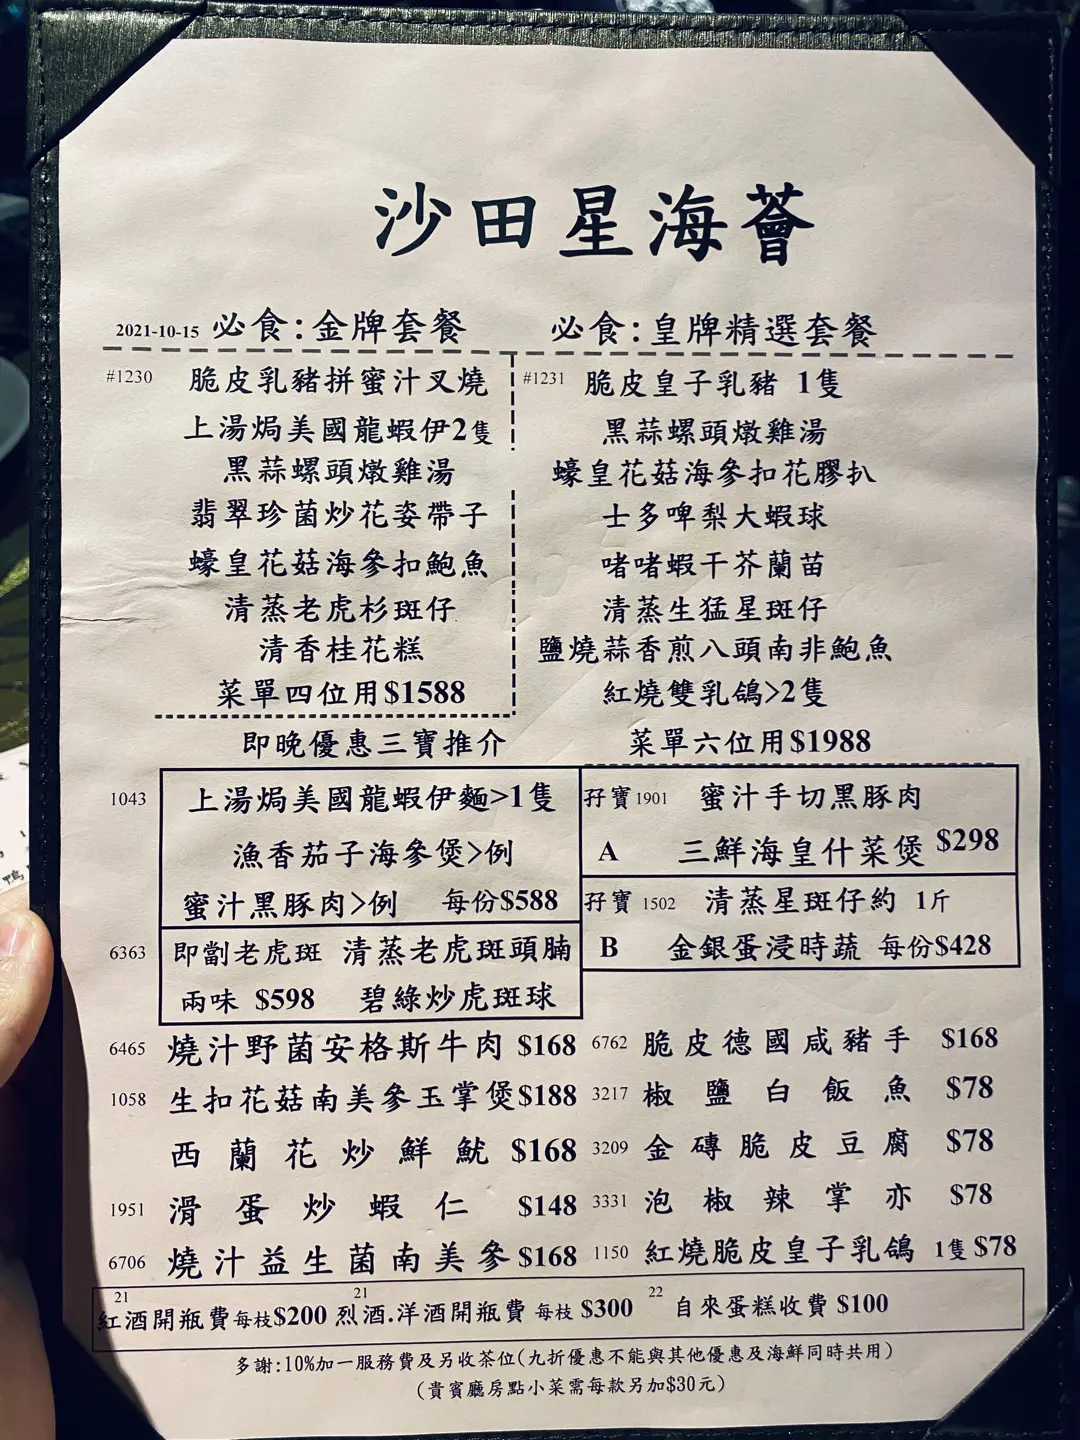 沙田星海薈
2021-10-15 必食:金牌套餐
#1230 脆皮乳豬拼蜜汁叉燒
上湯焗美國龍蝦伊2隻
黑蒜螺頭燉雞湯
翡翠珍菌炒花姿帶子
蠔皇花菇海參扣鮑魚
清蒸老虎杉斑仔
清香桂花糕
菜單四位用$1588
必食:皇牌精選套餐
#1231 脆皮皇子乳豬 1隻
黑蒜螺頭燉雞湯
蠔皇花菇海參扣花膠扒
士多啤梨大蝦球
啫啫蝦干芥蘭苗
清蒸生猛星斑仔
鹽燒蒜香煎八頭南非鮑魚
紅燒雙乳鴿>2隻
菜單六位用$1988
即晚優惠三寶推介
1043 上湯焗美國龍蝦伊麵>1隻
漁香茄子海參煲>例
蜜汁黑豚肉>例 每份$588
6363 即劏老虎斑 清蒸老虎斑頭腩
兩味 $598 碧綠炒虎斑球
孖寶 1901 蜜汁手切黑豚肉
A 三鮮海皇什菜煲 $298
孖寶 1502 清蒸星斑仔約 1斤
B 金銀蛋浸時蔬 每份$428
6465 燒汁野菌安格斯牛肉 $168
1058 生扣花菇南美參玉掌煲$188
西蘭花炒鮮魷 $168
1951 滑蛋炒蝦仁 $148
6706 燒汁益生菌南美參$168
6762 脆皮德國咸豬手 $168
3217 椒鹽白飯魚 $78
3209 金磚脆皮豆腐 $78
3331 泡椒辣掌亦 $78
1150 紅燒脆皮皇子乳鴿 1隻 $78
21 紅酒開瓶費每枝$200 21 烈酒.洋酒開瓶費 每枝 $300 22 自來蛋糕收費 $100
多謝:10%加一服務費及另收茶位(九折優惠不能與其他優惠及海鮮同時共用)
(貴賓廳房點小菜需每款另加$30元)